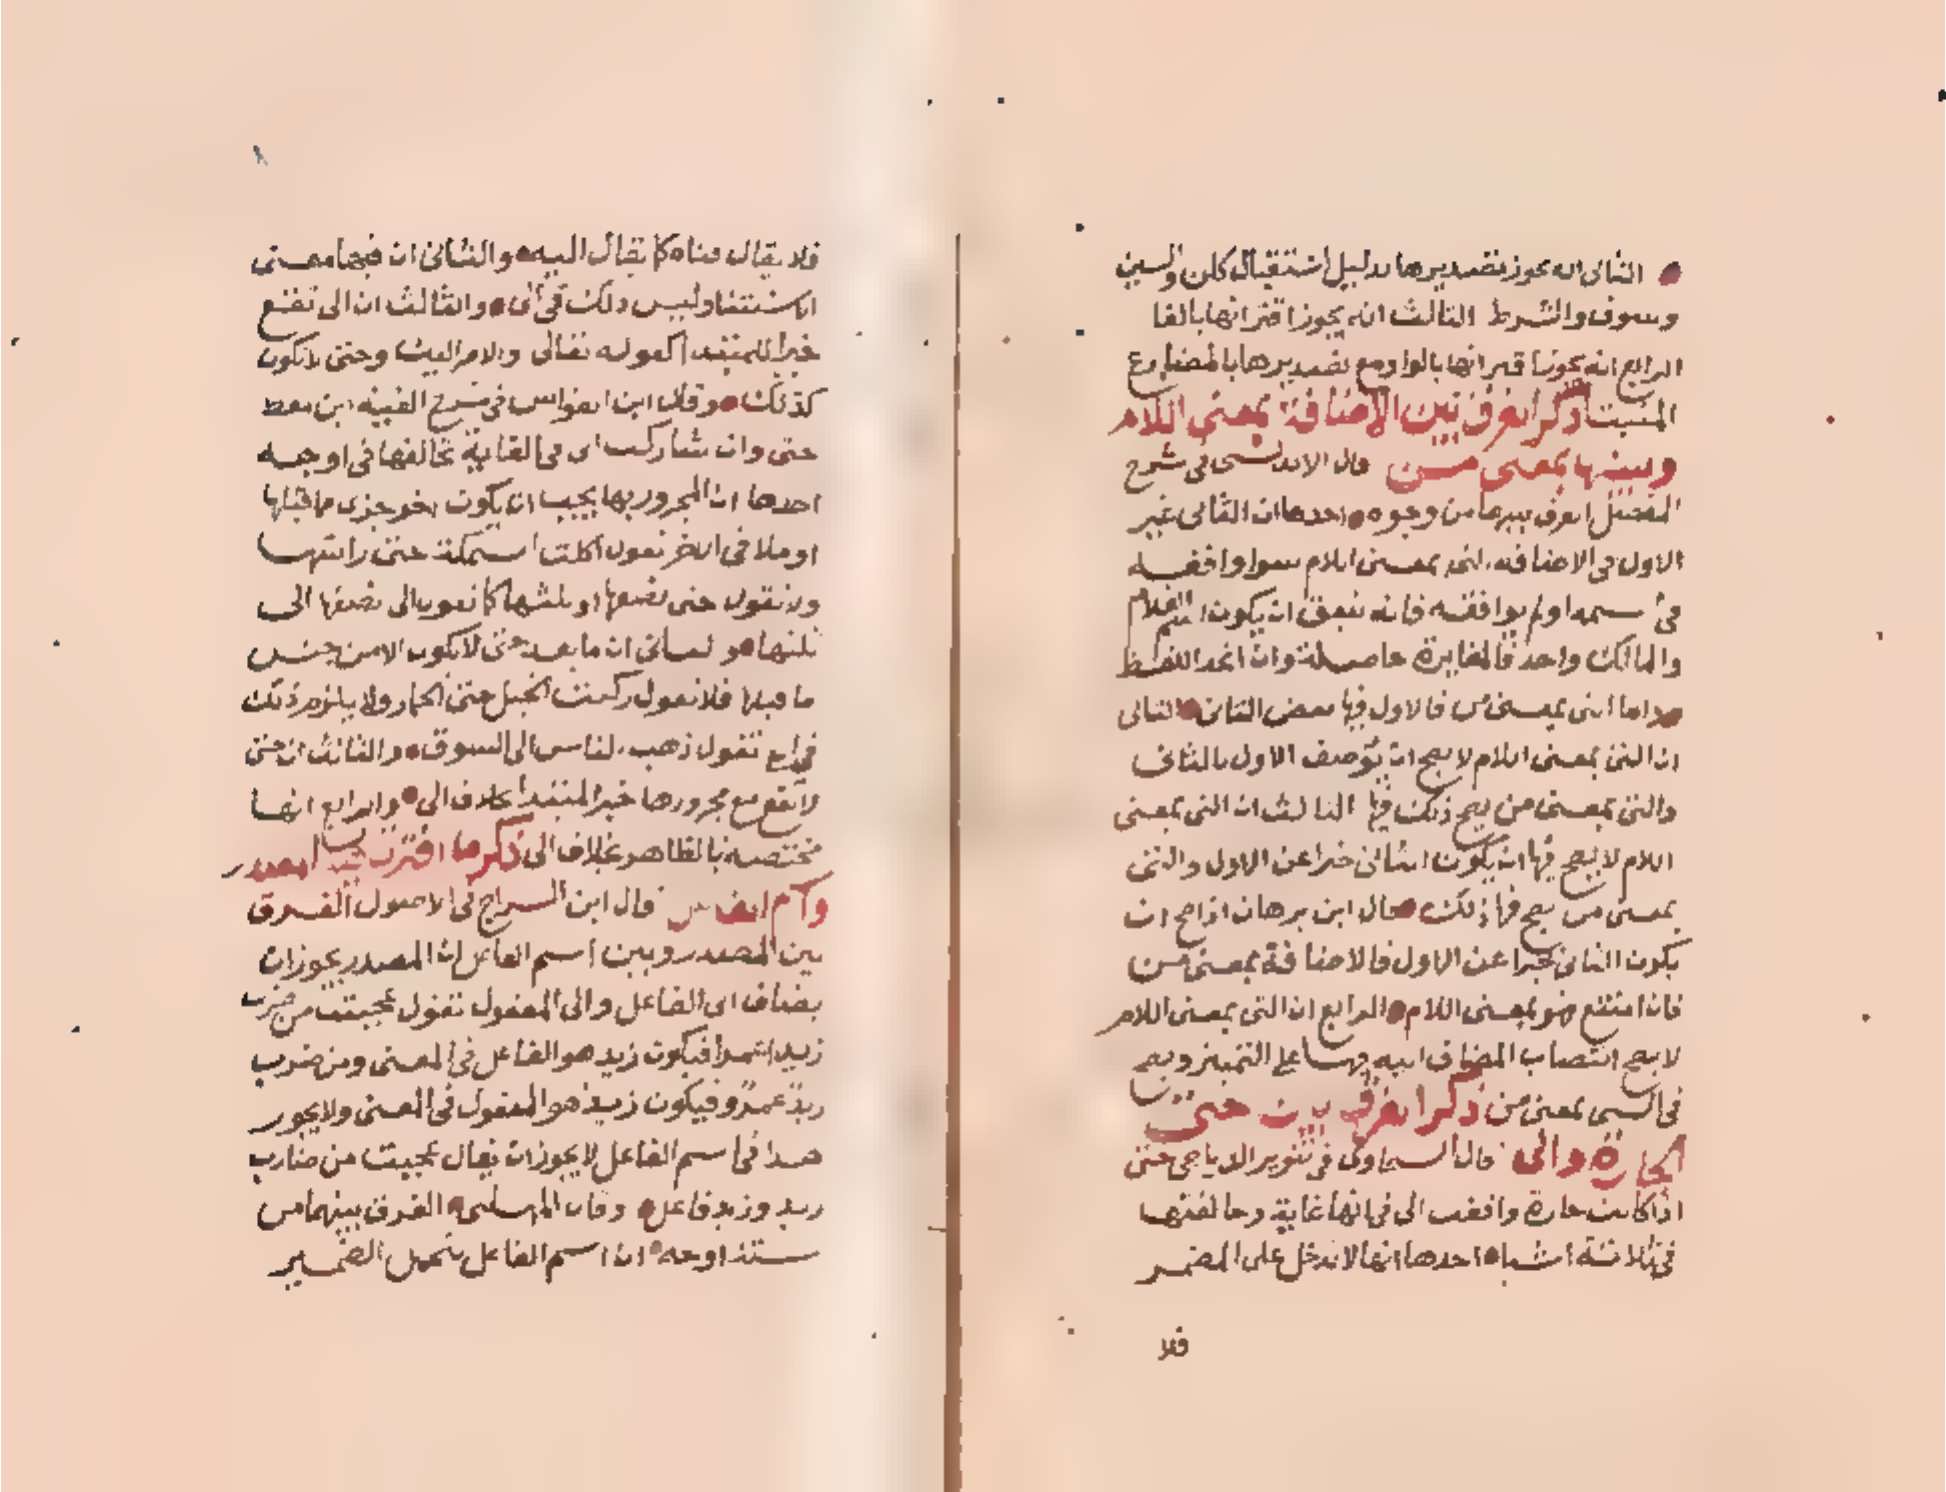 الثانى انه يجوز تصديرها بدليل استقبال كلن والسين
وسوف والشرط الثالث انه يجوز اقترانها بالفا
الرابع انه يجوز اقترانها بالواو مع تصديرها بالمضارع
المثبت ذكر الفرق بين الاضافة بمعنى اللام
وبينها بمعنى من قال الاندلسى فى شرح
المفصل الفرق بينهما من وجوه احدها ان الثانى غير
الاول فى الاضافه التى بمعنى اللام سوا وافقه
فى اسمه او لم يوافقه فانه يتفق ان يكون اسم الغلام
والمالك واحد فالمغايرة حاصلة وان اتحد اللفظ
واما التى بمعنى من فالاول فيها بعض الثانى الثانى
ان التى بمعنى اللام لا يصح ان يوصف الاول بالثانى
والتى بمعنى من يصح ذلك فيها الثالث ان التى بمعنى
اللام لا يصح فيها ان يكون الثانى خبرا عن الاول والتى
بمعنى من يصح فيها ذلك قال ابن برهان اذا صح ان
يكون الثانى خبرا عن الاول فالاضافة بمعنى من
فان امتنع فهو بمعنى اللام الرابع ان التى بمعنى اللام
لا يصح انتصاب المضاف اليه فيها على التمييز ويصح
فى التى بمعنى من ذكر الفرق بين حتى
الجارة والى قال السخاوى فى تنوير الدياجى حتى
اذا كانت جارة وافقت الى فى انها غاية وخالفتها
فى ثلاثة اشياء احدها انها لا تدخل على المضمر
فلا
فلا يقال حتاه كما يقال اليه والثانى ان فيها معنى
الاستثنا وليس ذلك فى الى والثالث ان الى تقع
خبرا للمبتدا كقوله تعالى والامر اليك وحتى لا تكون
كذلك وقال ابن القواس فى شرح الفية ابن معط
حتى وان شاركت الى فى الغاية تخالفها فى اوجه
احدها ان المجرور بها يجب ان يكون اخر جزء مما قبلها
او ملاقى الاخر تقول اكلت السمكة حتى راسها
ولا تقول حتى نصفها او ثلثها كما تقول الى نصفها الى
ثلثها والثانى ان ما بعد حتى لا يكون الا من جنس
ما قبلها فلا تقول ركبت الخيل حتى الحمار ولا يلزم ذلك
فى الى تقول ذهب الناس الى السوق والثالث ان حتى
لا تقع مع مجرورها خبر المبتدا بخلاف الى والرابع انها
مختصة بالظاهر بخلاف الى ذكر ما افترق فيه المصدر
واسم الفاعل قال ابن السراج فى الاصول الفرق
بين المصدر وبين اسم الفاعل ان المصدر يجوز ان
يضاف الى الفاعل والى المفعول تقول عجبت من ضرب
زيد عمرا فيكون زيد هو الفاعل فى المعنى ومن ضرب
زيد عمرو فيكون زيد هو المفعول فى المعنى ولا يجوز
هذا فى اسم الفاعل لا يجوز ان يقال عجبت من ضارب
زيد وزيد فاعل وقال المهلبى الفرق بينهما من
ستة اوجه ان اسم الفاعل يتحمل الضمير